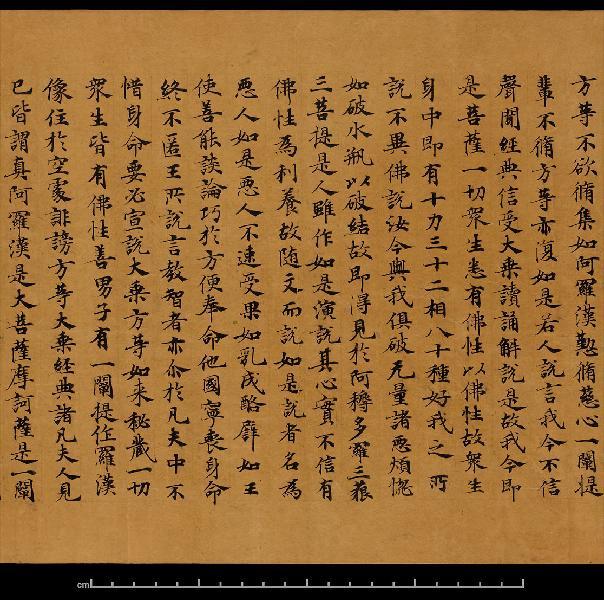 方等不欲脩集如阿羅漢懃脩慈心一闡提
輩不脩方等亦復如是若人說言我今不信
聲聞經典信受大乗讀誦解說是故我今即
是菩薩一切衆生悉有佛性以佛性故衆生
身中即有十力三十二相八十種好我之所
說不異佛說汝今與我俱破无量諸惡煩惱
如破水瓶以破結故即得見於阿耨多羅三藐
三菩提是人雖作如是演說其心實不信有
佛性為利養故隨文而說如是說者名為
惡人如是惡人不速受果如乳成酪譬如王
使善能談論巧於方便奉命他國寧喪身命
終不匿王所說言教智者亦尒於凡夫中不
惜身命要必宣說大乗方等如来秘藏一切
衆生皆有佛性善男子有一闡提作羅漢
像住於空處誹謗方等大乗經典諸凡夫人見
已皆謂真阿羅漢是大菩薩摩訶薩是一闡
cm